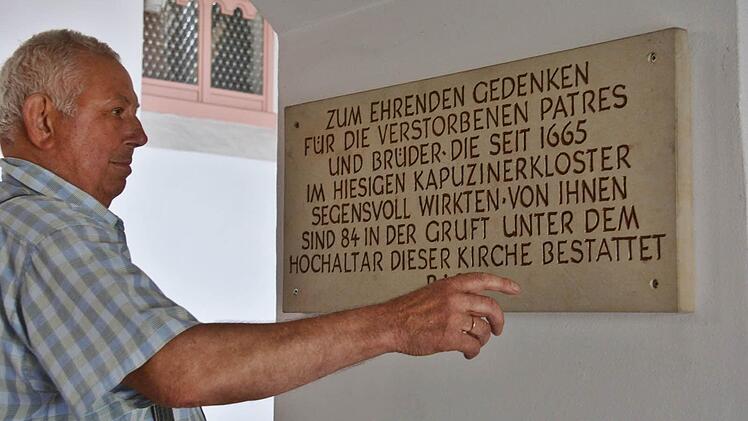 ZUM EHRENDEN GEDENKEN
FÜR DIE VERSTORBENEN PATRES
UND BRÜDER · DIE SEIT 1665
IM HIESIGEN KAPUZINERKLOSTER
SEGENSVOLL WIRKTEN · VON IHNEN
SIND 84 IN DER GRUFT UNTER DEM
HOCHALTAR DIESER KIRCHE BESTATTET